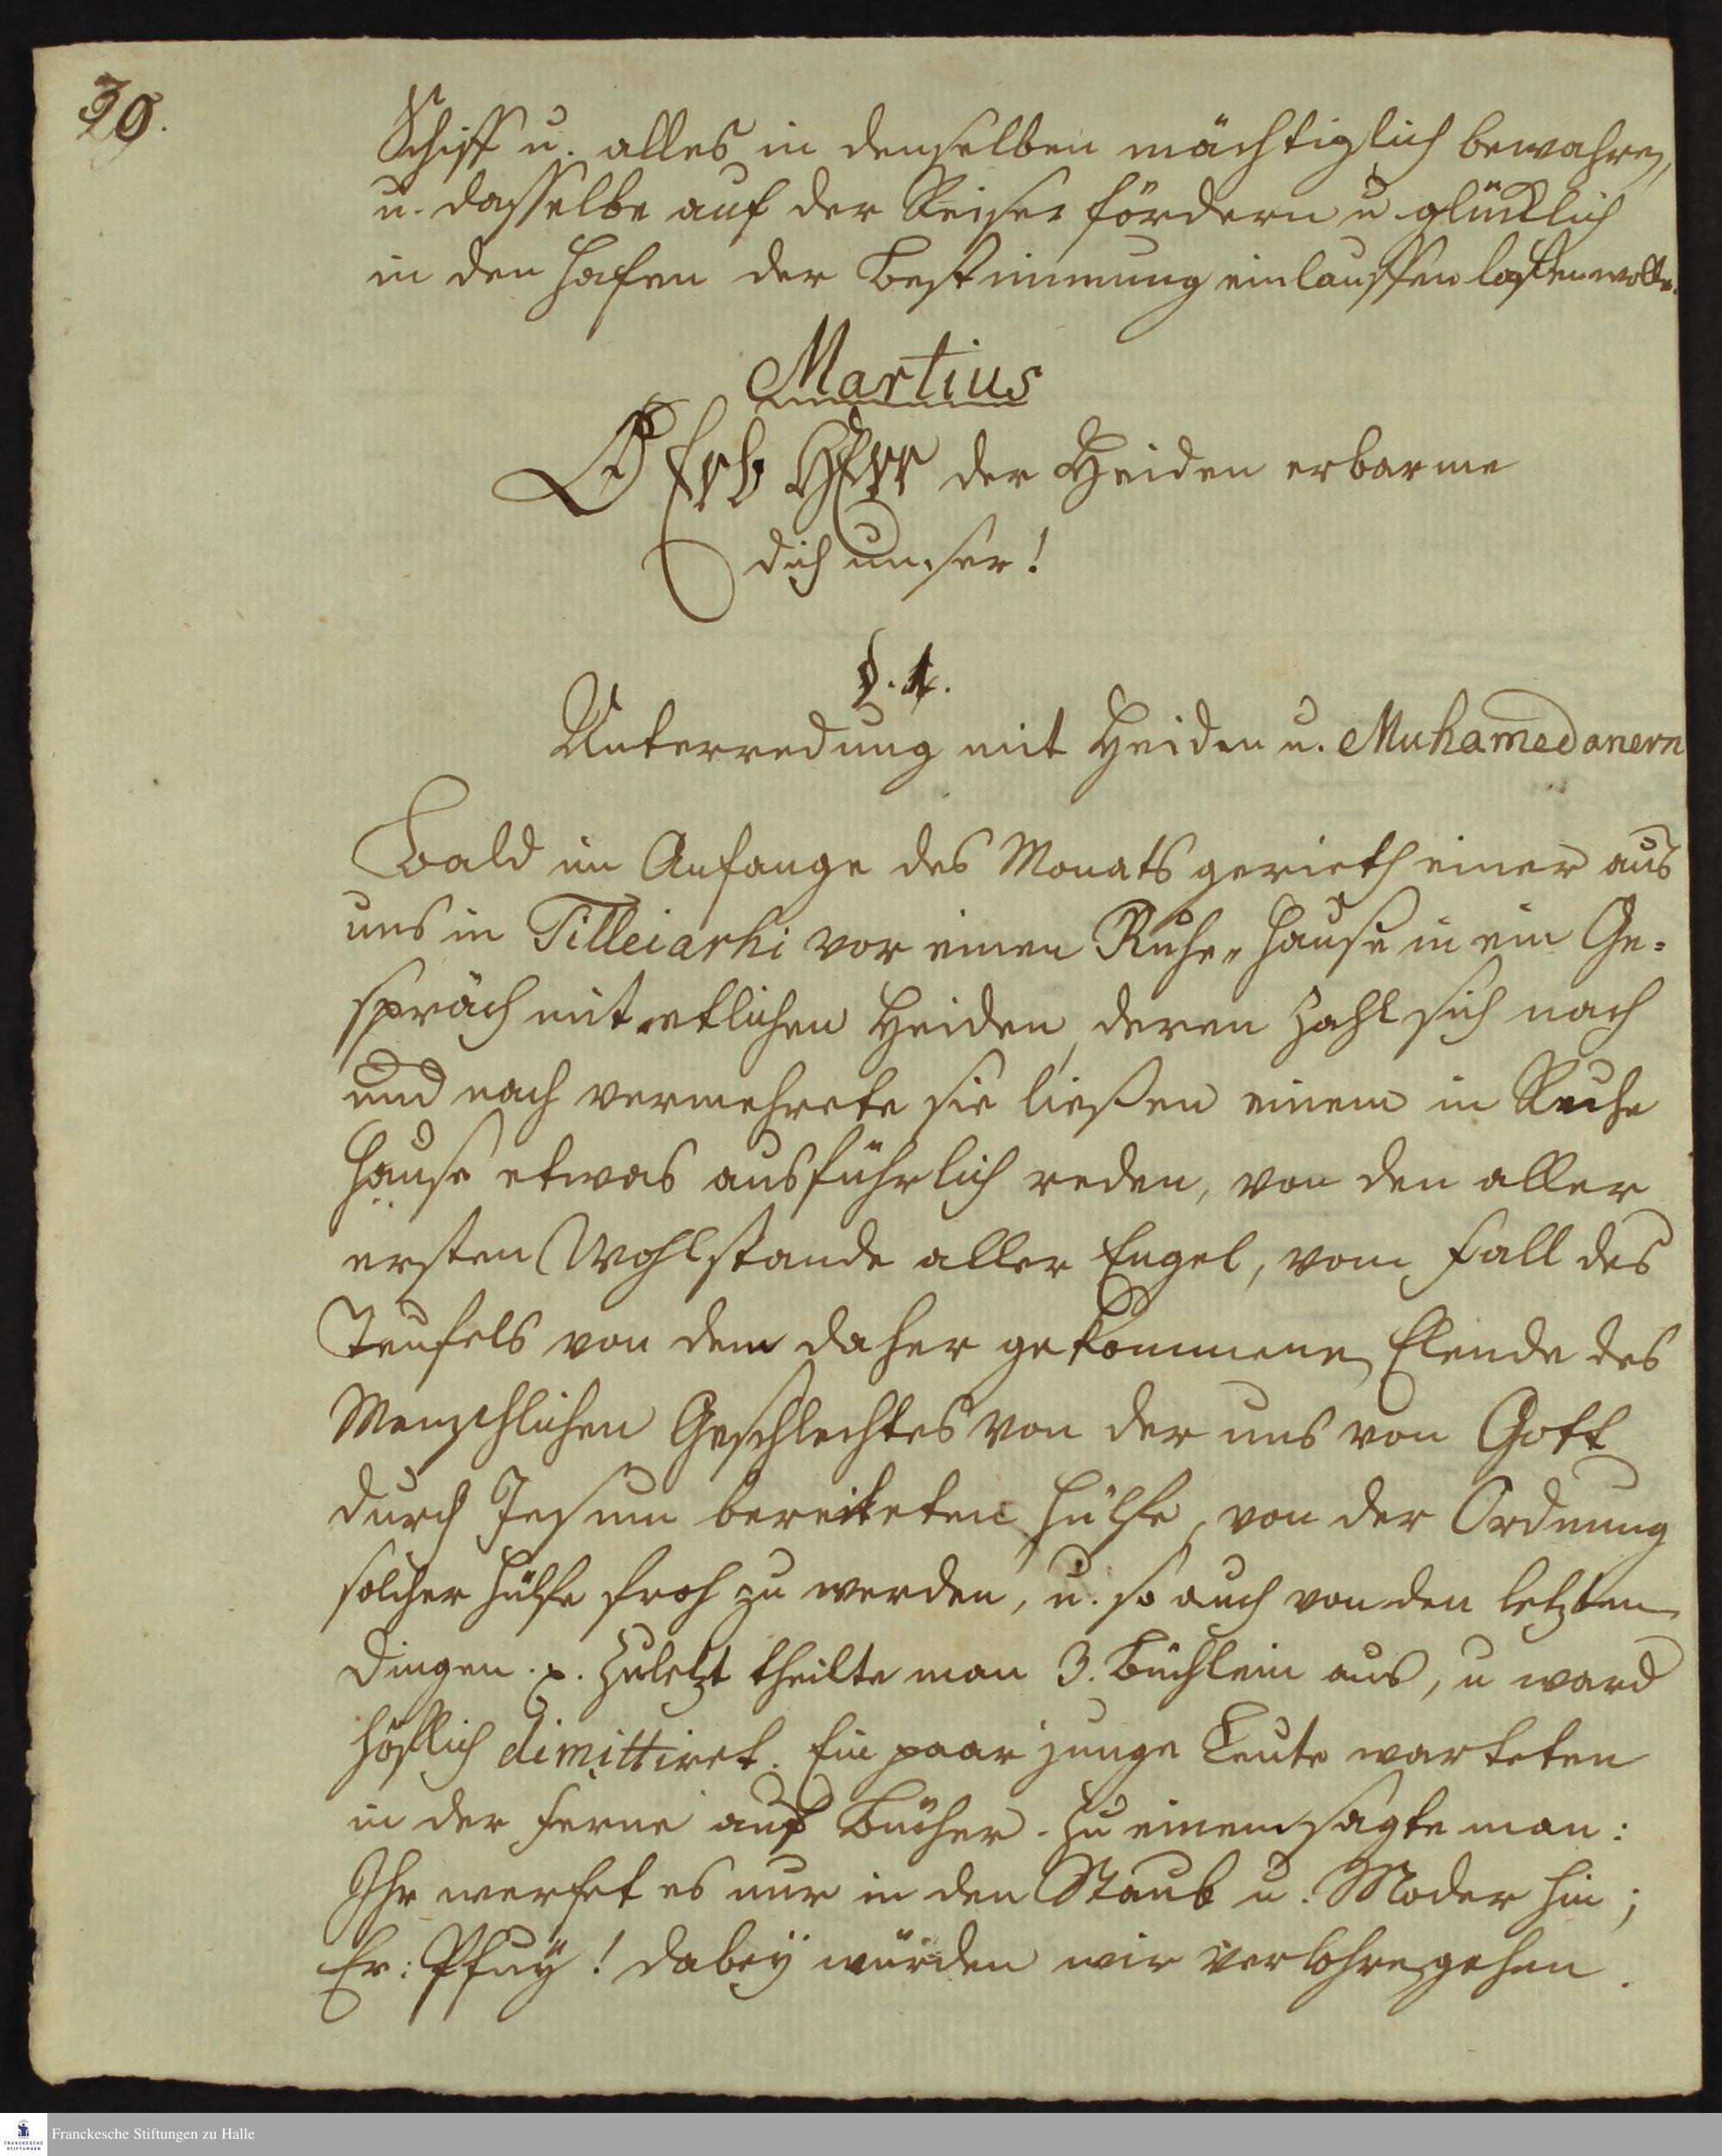 30.
Schiff u. alles in denselben mächtiglich bewahren,
u. dasselbe auf der Reise fördern u. glücklich
in den Hafen der Bestimmung einlauffen lassen wolle.
Martius
O Erb HErr der Heiden erbarme
dich unser!
§. 1.
Unterredung mit Heiden u. Muhamedanern
Bald im Anfange des Monats gerieth einer aus
uns in Tilleiarhi vor einen Ruhe-Hause in ein Ge=
spräch mit etlichen Heiden, deren Zahl sich nach
und nach vermehrete sie ließen einem in Ruhe
Hause etwas ausführlich reden, von den aller
ersten Wohlstande aller Engel, vom Fall des
Teufels von dem daher gekommenen Elende des
Menschlichen Geschlechtes von der uns von Gott
durch Jesum bereiteten Hülfe, von der Ordnung
solcher Hülfe froh zu werden, u. so auch von den letzten
Dingen. x. Zuletzt theilte man 3. Büchlein aus, u ward
höflich dimittiret. Ein paar junge Leute warteten
in der Ferne auf Bücher. Zu einem sagte man:
Ihr werfet es nur in den Staub u. Moder hin;
Er: Pfuÿ! dabeÿ würden wir verlohren gehen.
Franckesche Stiftungen zu Halle
FRANCKESCHE
STIFTUNGEN